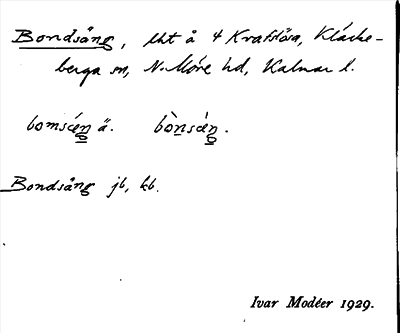 Bondsäng, lht å 4 Krafslösa, Kläcke-
berga sn, N. Möre hd, Kalmar l.
bomsæŋ ä. bònsæ̀ŋ.
Bondsäng jb, kb.
Ivar Modéer 1929.